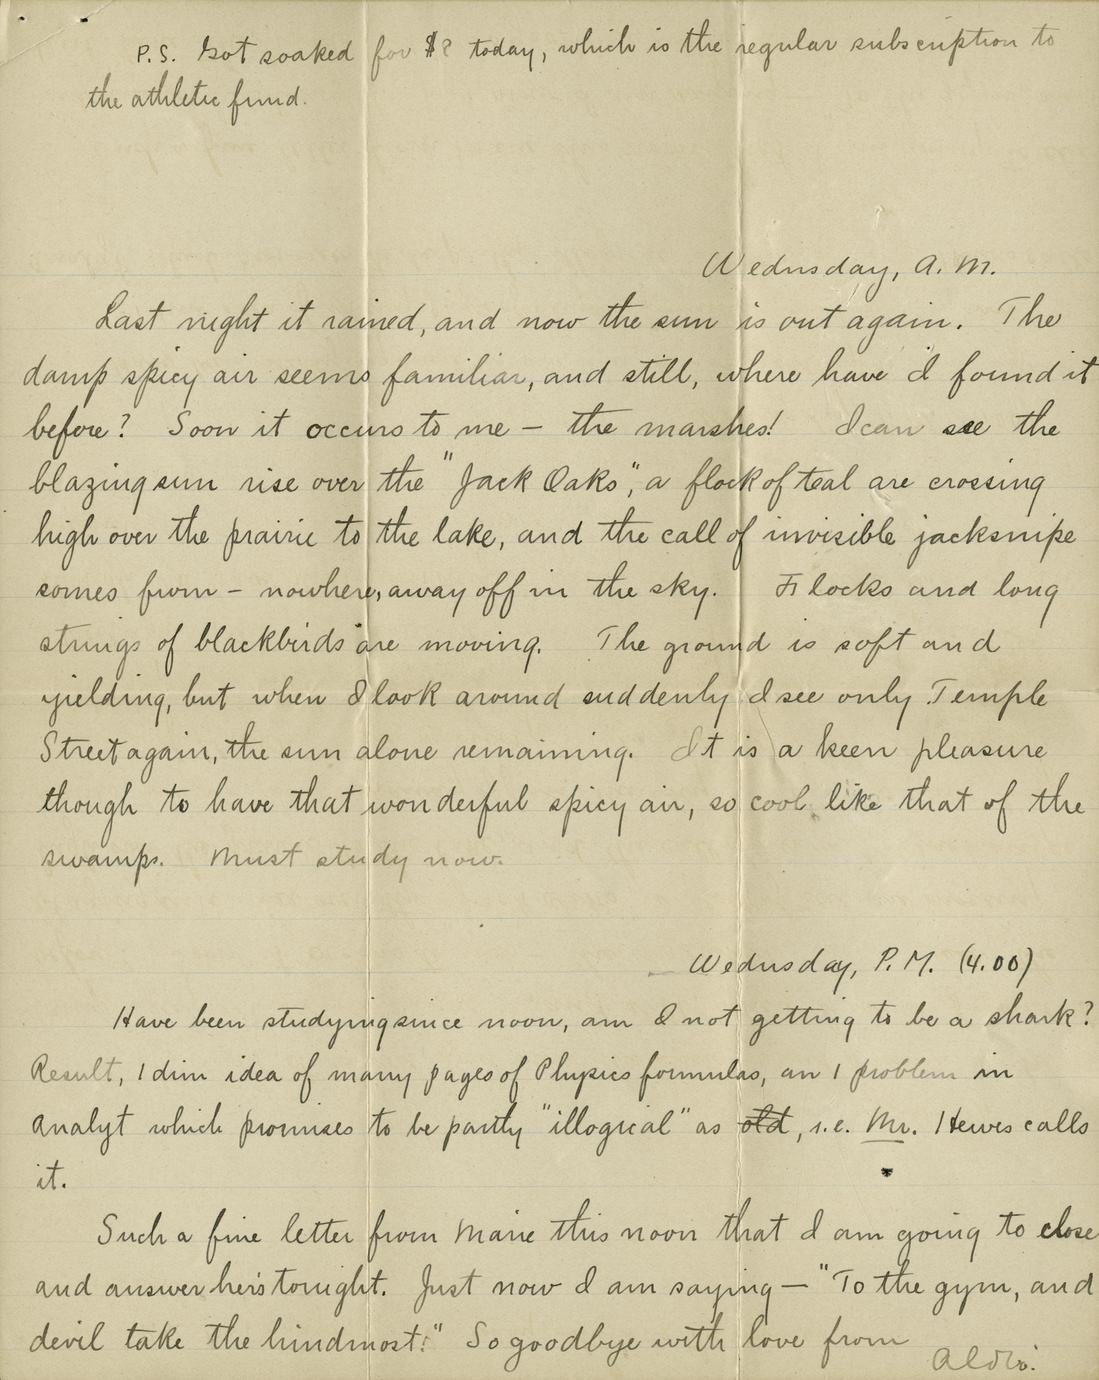 P.S. Got soaked for $8 today, which is the regular subscription to
the athletic fund.
Wednsday, A.M.
Last night it rained, and now the sun is out again. The
damp spicy air seems familiar, and still, where have I found it
before? Soon it occurs to me — the marshes! I can see the
blazing sun rise over the "Jack Oaks", a flock of teal are crossing
high over the prairie to the lake, and the call of invisible jacksnipe
comes from – nowhere, away off in the sky. Flocks and long
strings of blackbirds are moving. The ground is soft and
yielding, but when I look around suddenly I see only Temple
Street again, the sun alone remaining. It is a keen pleasure
though to have that wonderful spicy air, so cool like that of the
swamps. Must study now.
Wednsday, P.M. (4.00)
Have been studying since noon, am I not getting to be a shark?
Result, 1 dim idea of many pages of Physics formulas, an 1 problem in
analyt which promises to be partly "illogical" as old, i.e. Mr. Hewes calls
it.
Such a fine letter from Marie this noon that I am going to close
and answer hers tonight. Just now I am saying — "To the gym, and
devil take the hindmost!" So goodbye with love from
Aldo.